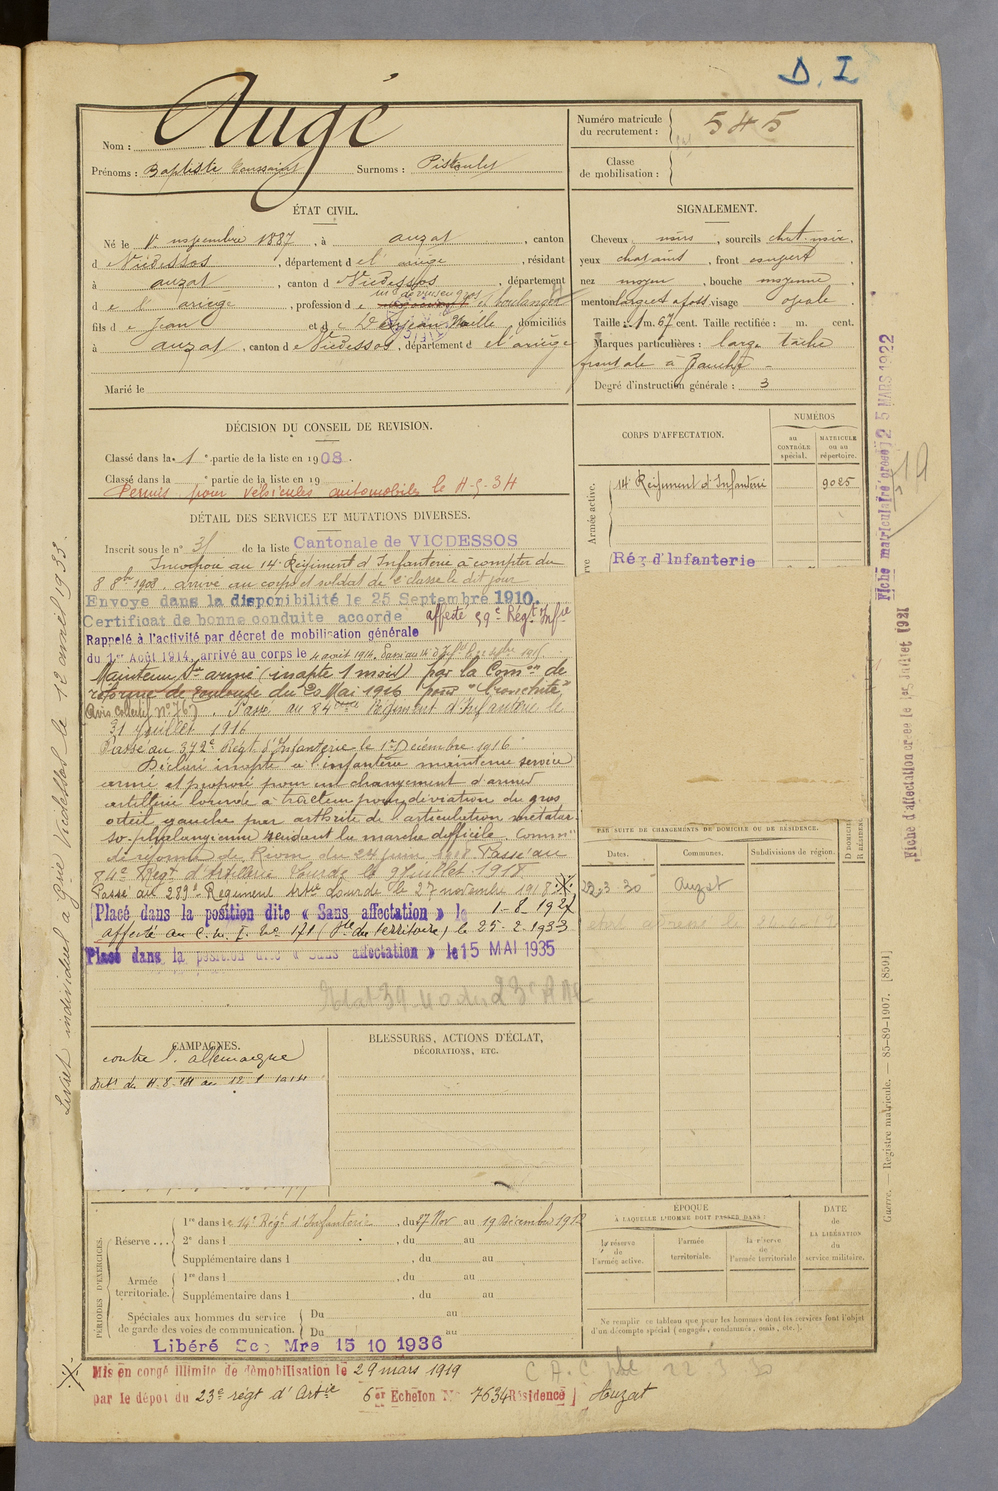 D. I
Augé
Nom :
Prénoms : Baptiste Toussaint Surnoms : Pistoulet
Numéro matricule
du recrutement : 545
Classe
de mobilisation :
ÉTAT CIVIL.
Né le 1er novembre 1887, à auzat, canton
d e Vicdessos, département d e l'ariège, résidant
à auzat, canton d e Vicdessos, département
md de vins en gros
d e l'ariège, profession d e et boulanger
fils d e Jean et d e Noëlle, domiciliés
à auzat, canton d e Vicdessos, département d e l'ariège
Marié le
SIGNALEMENT.
Cheveux noirs, sourcils chat. noir,
yeux chatains, front
nez moyen, bouche moyenne,
menton large et à foss. visage ovale
Taille : 1 m. 67 cent. Taille rectifiée : m. cent.
Marques particulières : large tache
frontale à gauche -
Degré d'instruction générale : 3
DÉCISION DU CONSEIL DE REVISION.
Classé dans la 1e partie de la liste en 1908.
Classé dans la e partie de la liste en 19
Permis pour véhicules automobiles le 4-9-34
DÉTAIL DES SERVICES ET MUTATIONS DIVERSES.
Inscrit sous le n° 31 de la liste Cantonale de VICDESSOS
Incorporé au 14e Régiment d'Infanterie à compter du
8 8bre 1908, arrivé au corps et soldat de 2e classe le dit jour
Envoyé dans la disponibilité le 25 Septembre 1910.
Certificat de bonne conduite accordé affecté 59e Régt Infie
Rappelé à l'activité par décret de mobilisation générale
du 1er Août 1914, arrivé au corps le 4 août 1914.
Maintenu Sce armé (inapte 1 mois) par la Comon de
réforme de Toulouse du 20 Mai 1916 pour "bronchite"
(Avis collectif N° 767). Passé au 84eme Régiment d'Infanterie le
31 Juillet 1916
Passé au 372e Régt d'Infanterie le 1er Décembre 1916
Déclaré inapte à l'infanterie maintenu service
armé et proposé pour un changement d'arme
artillerie lourde à tracteur pour déviation du gros
orteil gauche par arthrite de l'articulation métatar-
so-phalangienne rendant la marche difficile. Commn
de réforme de Riom du 24 juin 1918 Passé au
84e Régt d'Artillerie Lourde le 9 Juillet 1918
Passé au 289e Régiment Artie Lourde le 27 novembre 1918
Placé dans la position dite « Sans affectation » le 1-8-1927
affecté au C. M. I. No 171 (Sce du territoire) le 25-2-1933
Placé dans la position dite « Sans affectation » le 15 MAI 1935
CORPS D'AFFECTATION.
NUMÉROS
au
CONTRÔLE
spécial.
MATRICULE
ou au
répertoire.
Armée active.
14e Régiment d'Infanterie 9025
Rég d'Infanterie
PAR SUITE DE CHANGEMENTS DE DOMICILE OU DE RÉSIDENCE.
Dates. Communes. Subdivisions de région.
22-3-30 Auzat
CAMPAGNES.
contre l'allemagne
BLESSURES, ACTIONS D'ÉCLAT,
DÉCORATIONS, ETC.
PÉRIODES D'EXERCICES.
Réserve ...
1re dans le 14e Régt d'Infanterie, du 27 Nov au 19 Décembre 1912
2e dans l , du au
Supplémentaire dans l , du au
Armée
territoriale.
1re dans l , du au
Supplémentaire dans l , du au
Spéciales aux hommes du service
de garde des voies de communication.
Du au
Du au
ÉPOQUE
À LAQUELLE L'HOMME DOIT PASSER DANS :
la réserve
de
l'armée active.
l'armée
territoriale.
la réserve
de
l'armée territoriale
DATE
de
LA LIBÉRATION
du
service militaire.
Ne remplir ce tableau que pour les hommes dont les services font l'objet
d'un décompte spécial (engagés, condamnés, omis, etc.).
Libéré Sce Mre 15 10 1936
Mis en congé illimité de démobilisation le 29 mars 1919
par le dépôt du 23e régt d'Artie 6er Echelon No 7634 Résidence Auzat
Livret individuel a Gie Vicdessos le 12 avril 1935.
Fiche matriculaire créée 25 MARS 1922
Fiche d'affectation créée le 1er Juillet 1921
Guerre. — Registre matricule. — 85-89-1907. [8591]